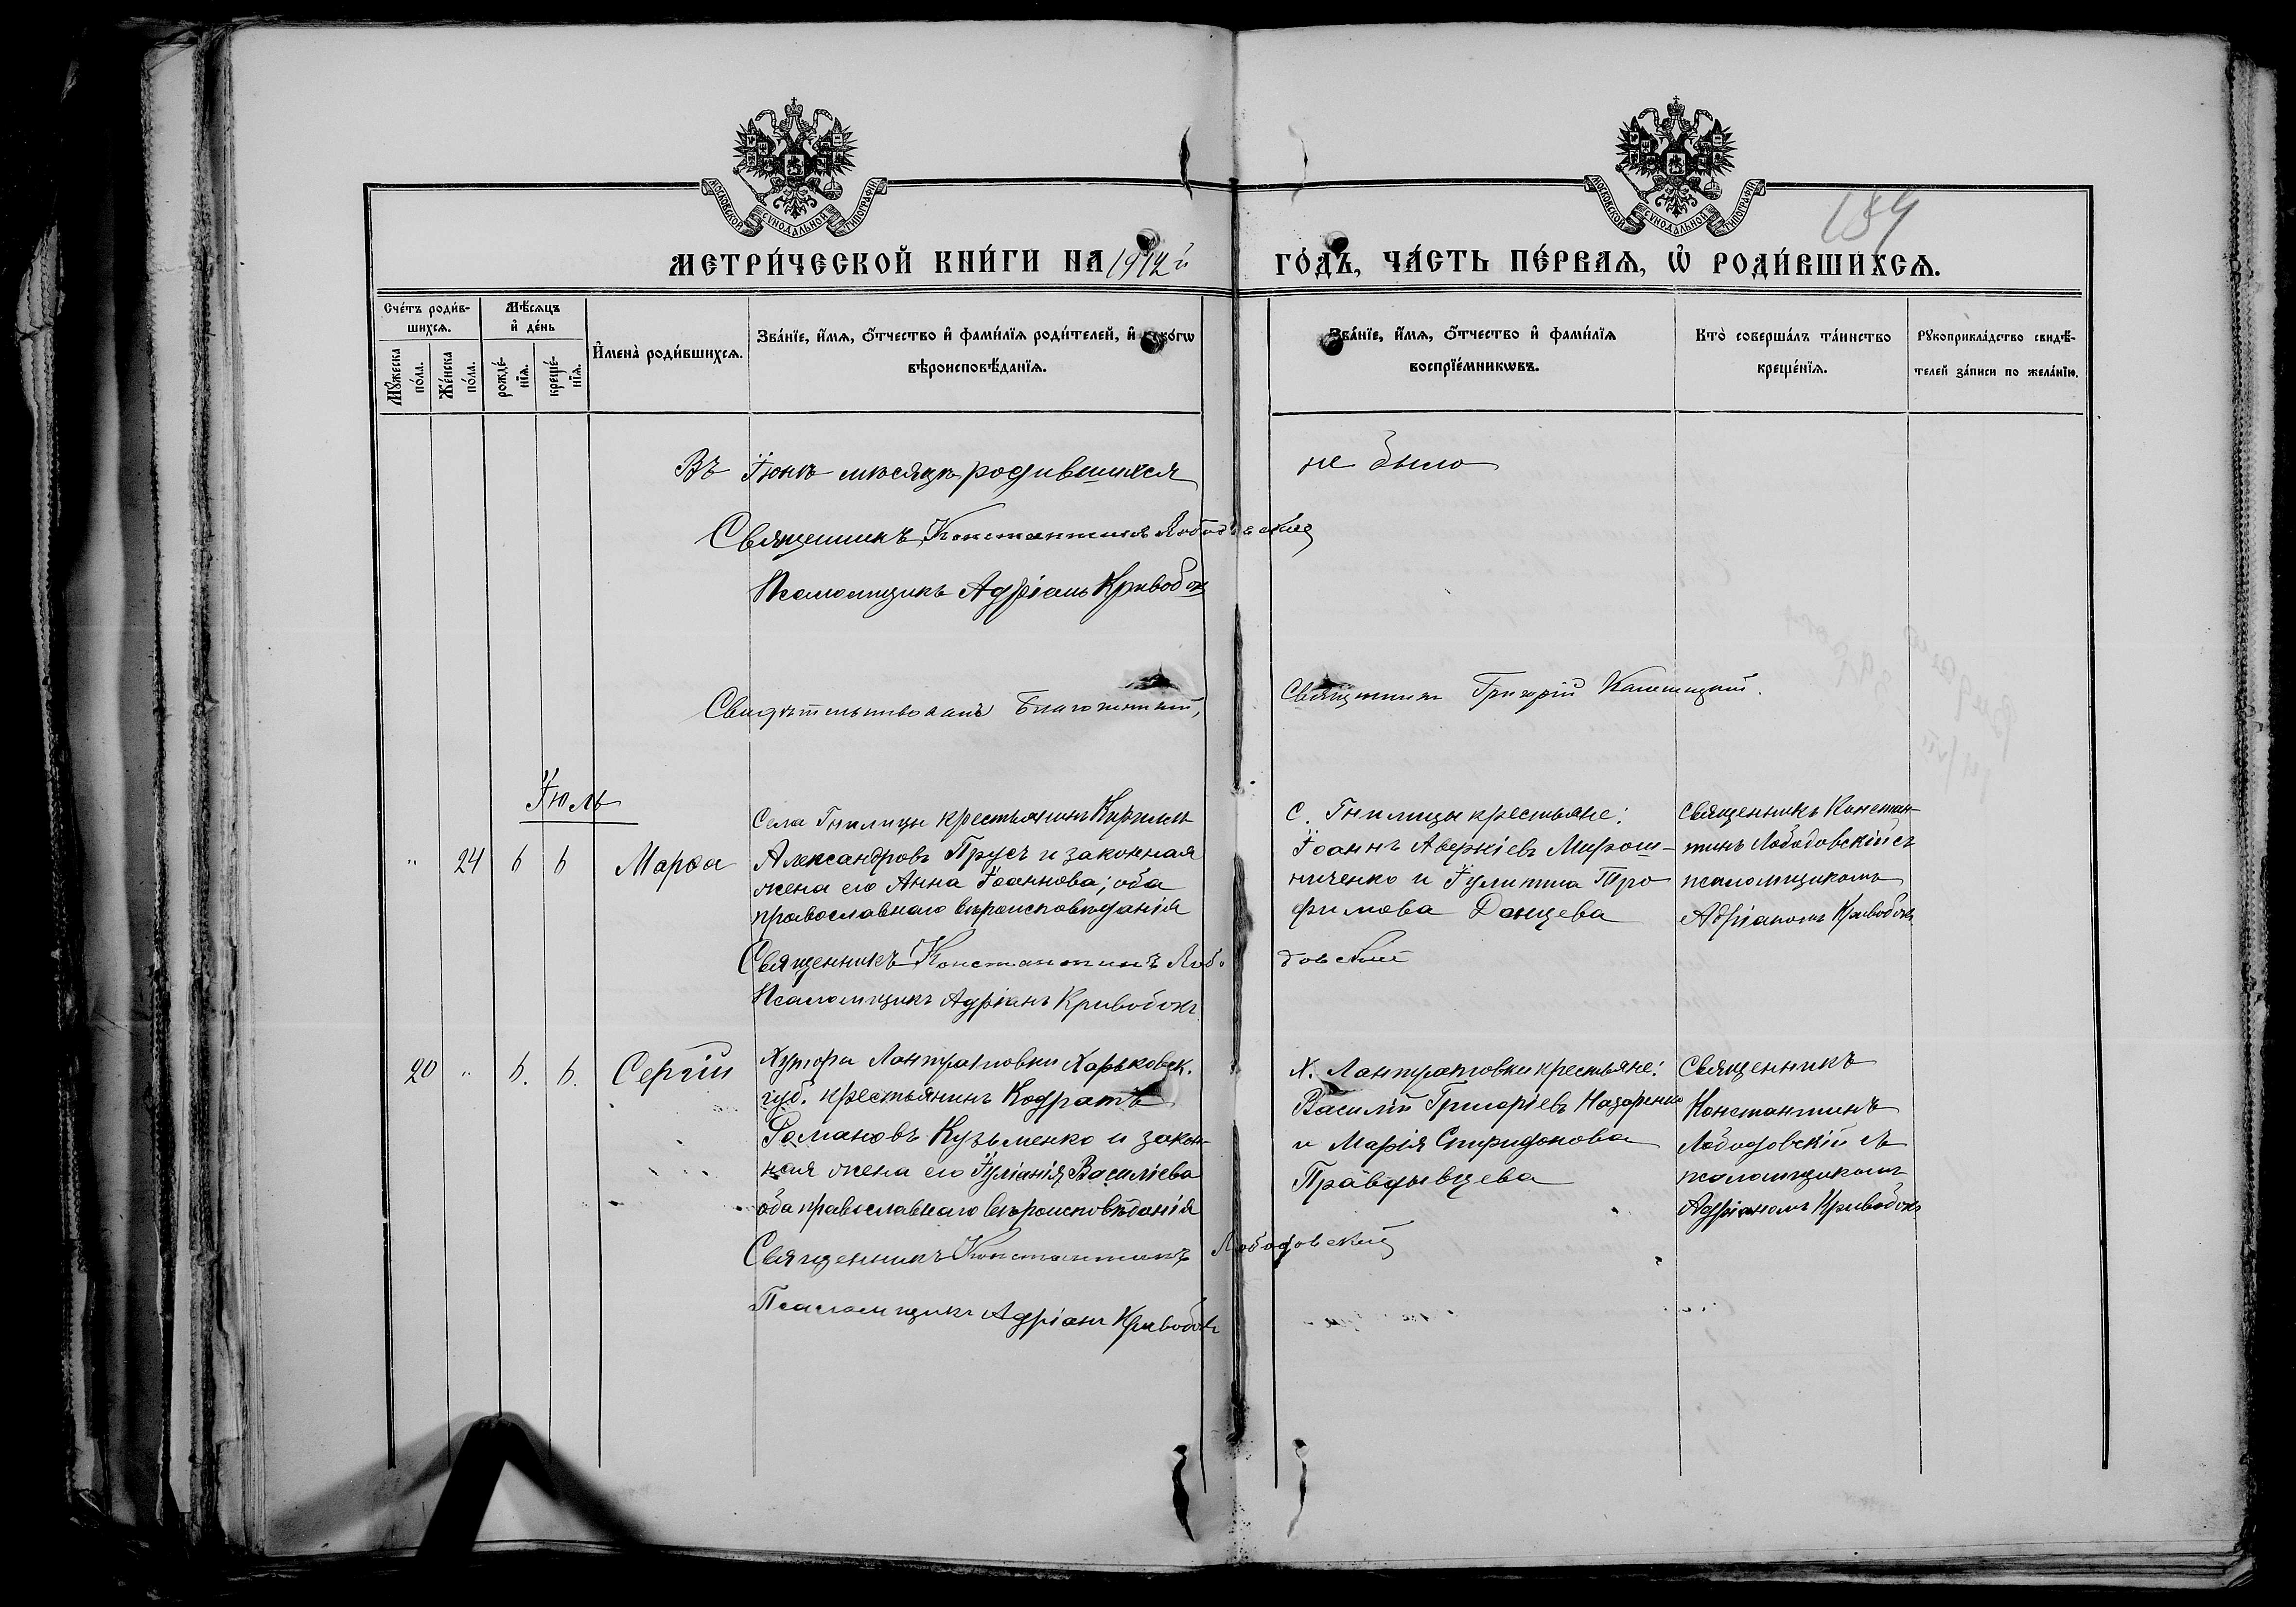 МОСКОВСКОЙ СѴНОДАЛЬНОЙ ТИПОГРАФІИ
МОСКОВСКОЙ СѴНОДАЛЬНОЙ ТИПОГРАФІИ
154
МЕТРИ́ЧЕСКОЙ КНИ́ГИ НА 1912 й ГО́ДЪ, ЧА́СТЬ ПЕ́РВАѦ, Ѡ҆ РОДИ́ВШИХСѦ.
Сче́тъ роди́в-
шихсѧ.
Мꙋ́жеска
по́ла.
Же́нска
по́ла.
Мѣ́сѧцъ
и҆ де́нь
рожде́-
нїѧ.
креще́-
нїѧ.
И҆мена̀ роди́вшихсѧ.
Зва́нїе, и҆́мѧ, ѻ҆́тчество и҆ фами́лїѧ роди́телей, и҆ како́гѡ
вѣроисповѣ́данїѧ.
Зва́нїе, и҆́мѧ, ѻ҆́тчество и҆ фами́лїѧ
воспрїе́мникѡвъ.
Кто̀ соверша́лъ та́инство
креще́нїѧ.
Рꙋкоприкла́дство свидѣ́-
телей за́писи по жела́нїю.
Въ Іюнѣ мѣсяцѣ родившихся не было
Священникъ Константинъ Лободовскій
Псаломщикъ Адріанъ Кривобок
Свидѣтельствовалъ Благочинный, Священник Григорій
Іюль
" 24 6 6 Марѳа
Села Гнилицы крестьянинъ Кириллъ
Александровъ Прусъ и законная
жена его Анна Іоаннова; оба
православнаго вѣроисповѣданія
С. Гнилицы крестьяне:
Іоаннъ Аверкіевъ Мирош-
ниченко и Іулитта Тро
фимова Донцева
Священникъ Констан-
тинъ Лободовскій съ
псаломщикомъ
Адріаномъ Кривобок
Священникъ Константинъ Лободовскій
Псаломщикъ Адріанъ Кривобокъ
20 " 6. 6. Сергій
Хутора Лантратовки Харьковск.
губ. крестьянинъ Кодратъ
Романовъ Кузьменко и закон-
ная жена его Іуліанія Василіева
оба православнаго вѣроисповѣданія
Х. Лантратовки крестьяне:
Василій Григоріевъ Назаренко
и Марія Спиридонова
Правдывцева
Священникъ
Константинъ
Лободовскій съ
псаломщикомъ
Адріаномъ Кривобокъ
Священникъ Константинъ Лободовскій
Псаломщикъ Адріанъ Кривобокъ